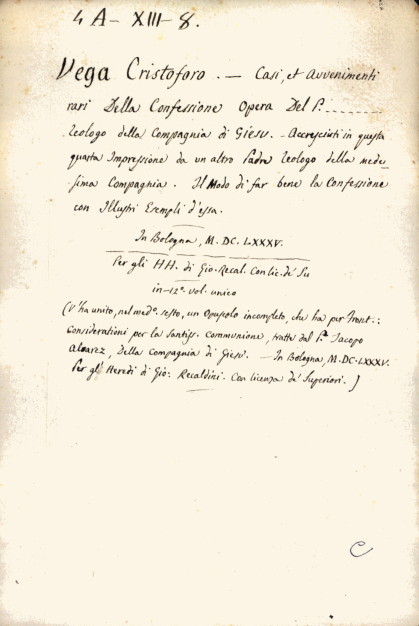 4 A - XIII - 8.
Vega Cristoforo. — Casi, et Avvenimenti
rari Della Confessione Opera Del P. --------
Teologo della Compagnia di Giesu. - Accresciuti in questa
quarta Impressione da un altro Padre Teologo della mede-
sima Compagnia. Il Modo di far bene la Confessione
con Illustri Esempli d'essa.
In Bologna, M. DC. LXXXV.
Per gli HH. di Gio. Recal. Con lic. de' Su
in-12°. vol. unico
(V'ha unito, nel med°. sesto, un Opuscolo incompleto, che ha per front.:
Considerationi per la Santiss. Communione, tratte dal P. Jacopo
Alvarez, Della Compagnia di Giesù. — In Bologna, M.DC.LXXXV.
Per gl' Heredi di Gio: Recaldini. Con licenza de' Superiori.)
C